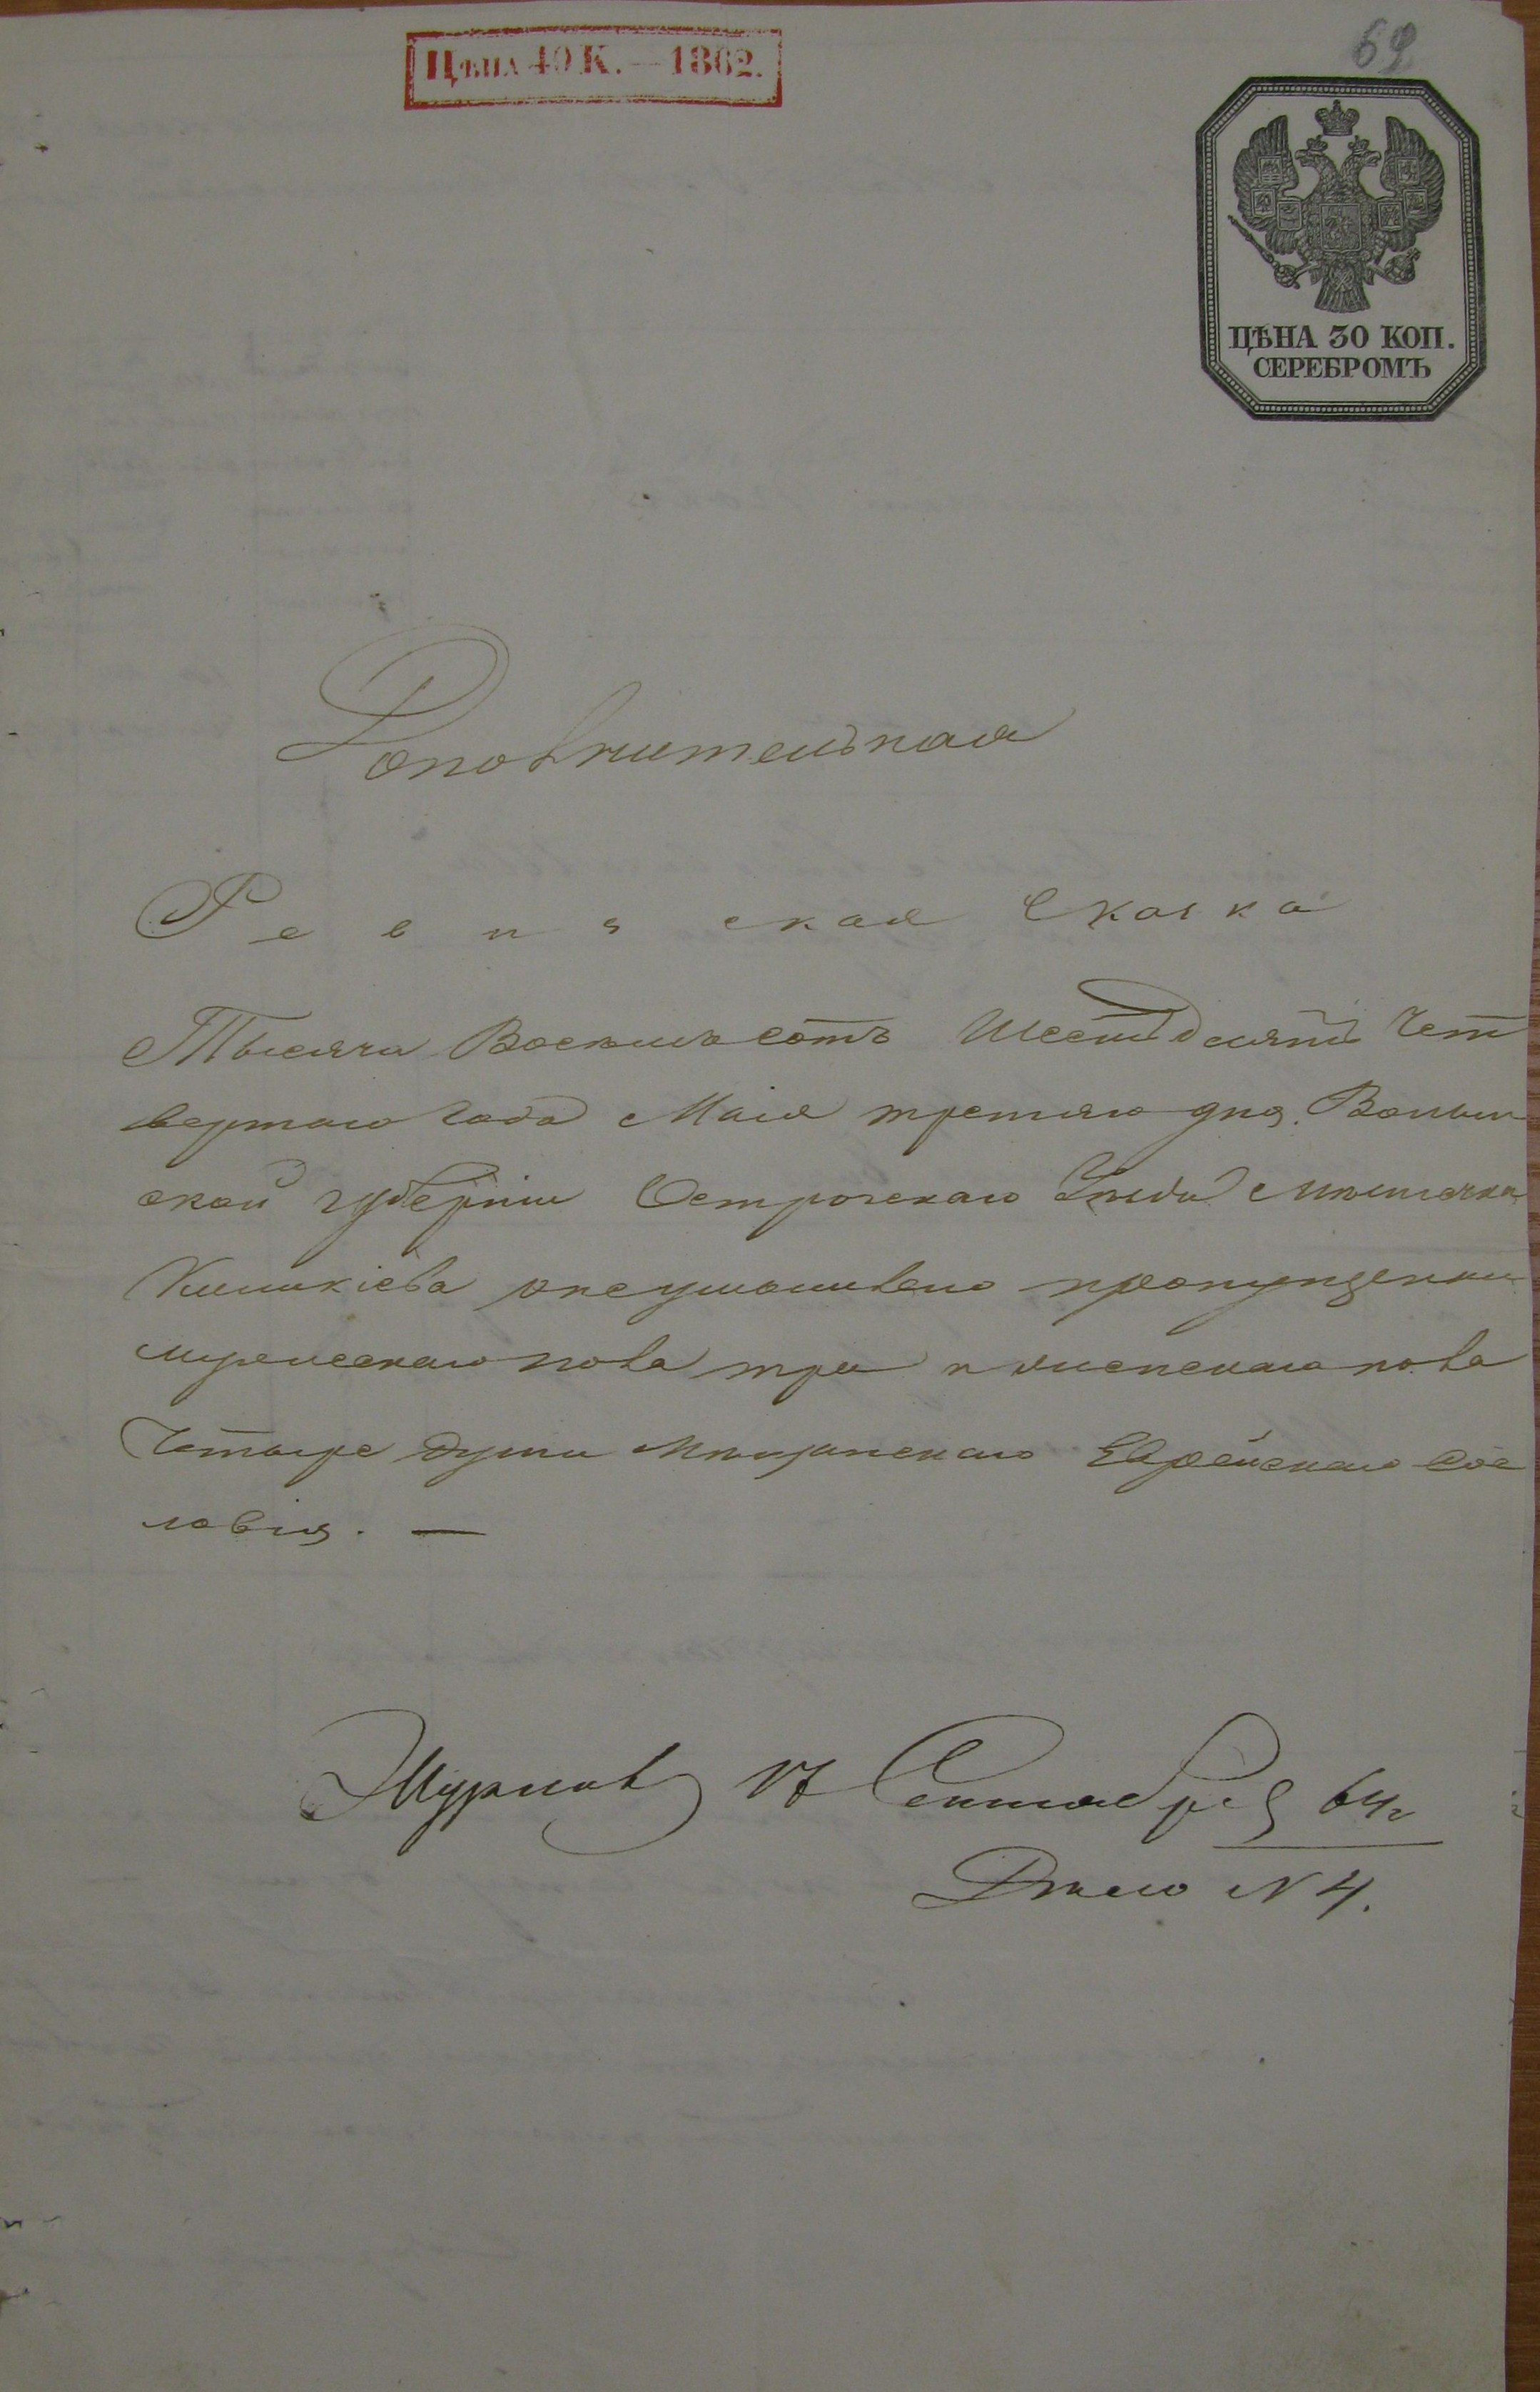 Цѣна 40 К. — 1862.
69
ЦѢНА 30 КОП.
СЕРЕБРОМЪ
Дополнительная
Ревизская Сказка
Тысяча Восемьсотъ Шестьдесятъ Чет
вертаго Года Маія третьяго дня. Волын
ской губерніи Острогскаго Уѣзда Мѣстечка
Куликіева о неумышлено пропущенны
мужескаго пола три и женскаго пола
Четыре души Мѣщанскаго Еврейскаго Сос
ловія. —
Журналъ 17 Сентября 64 г
Дѣло N 4.